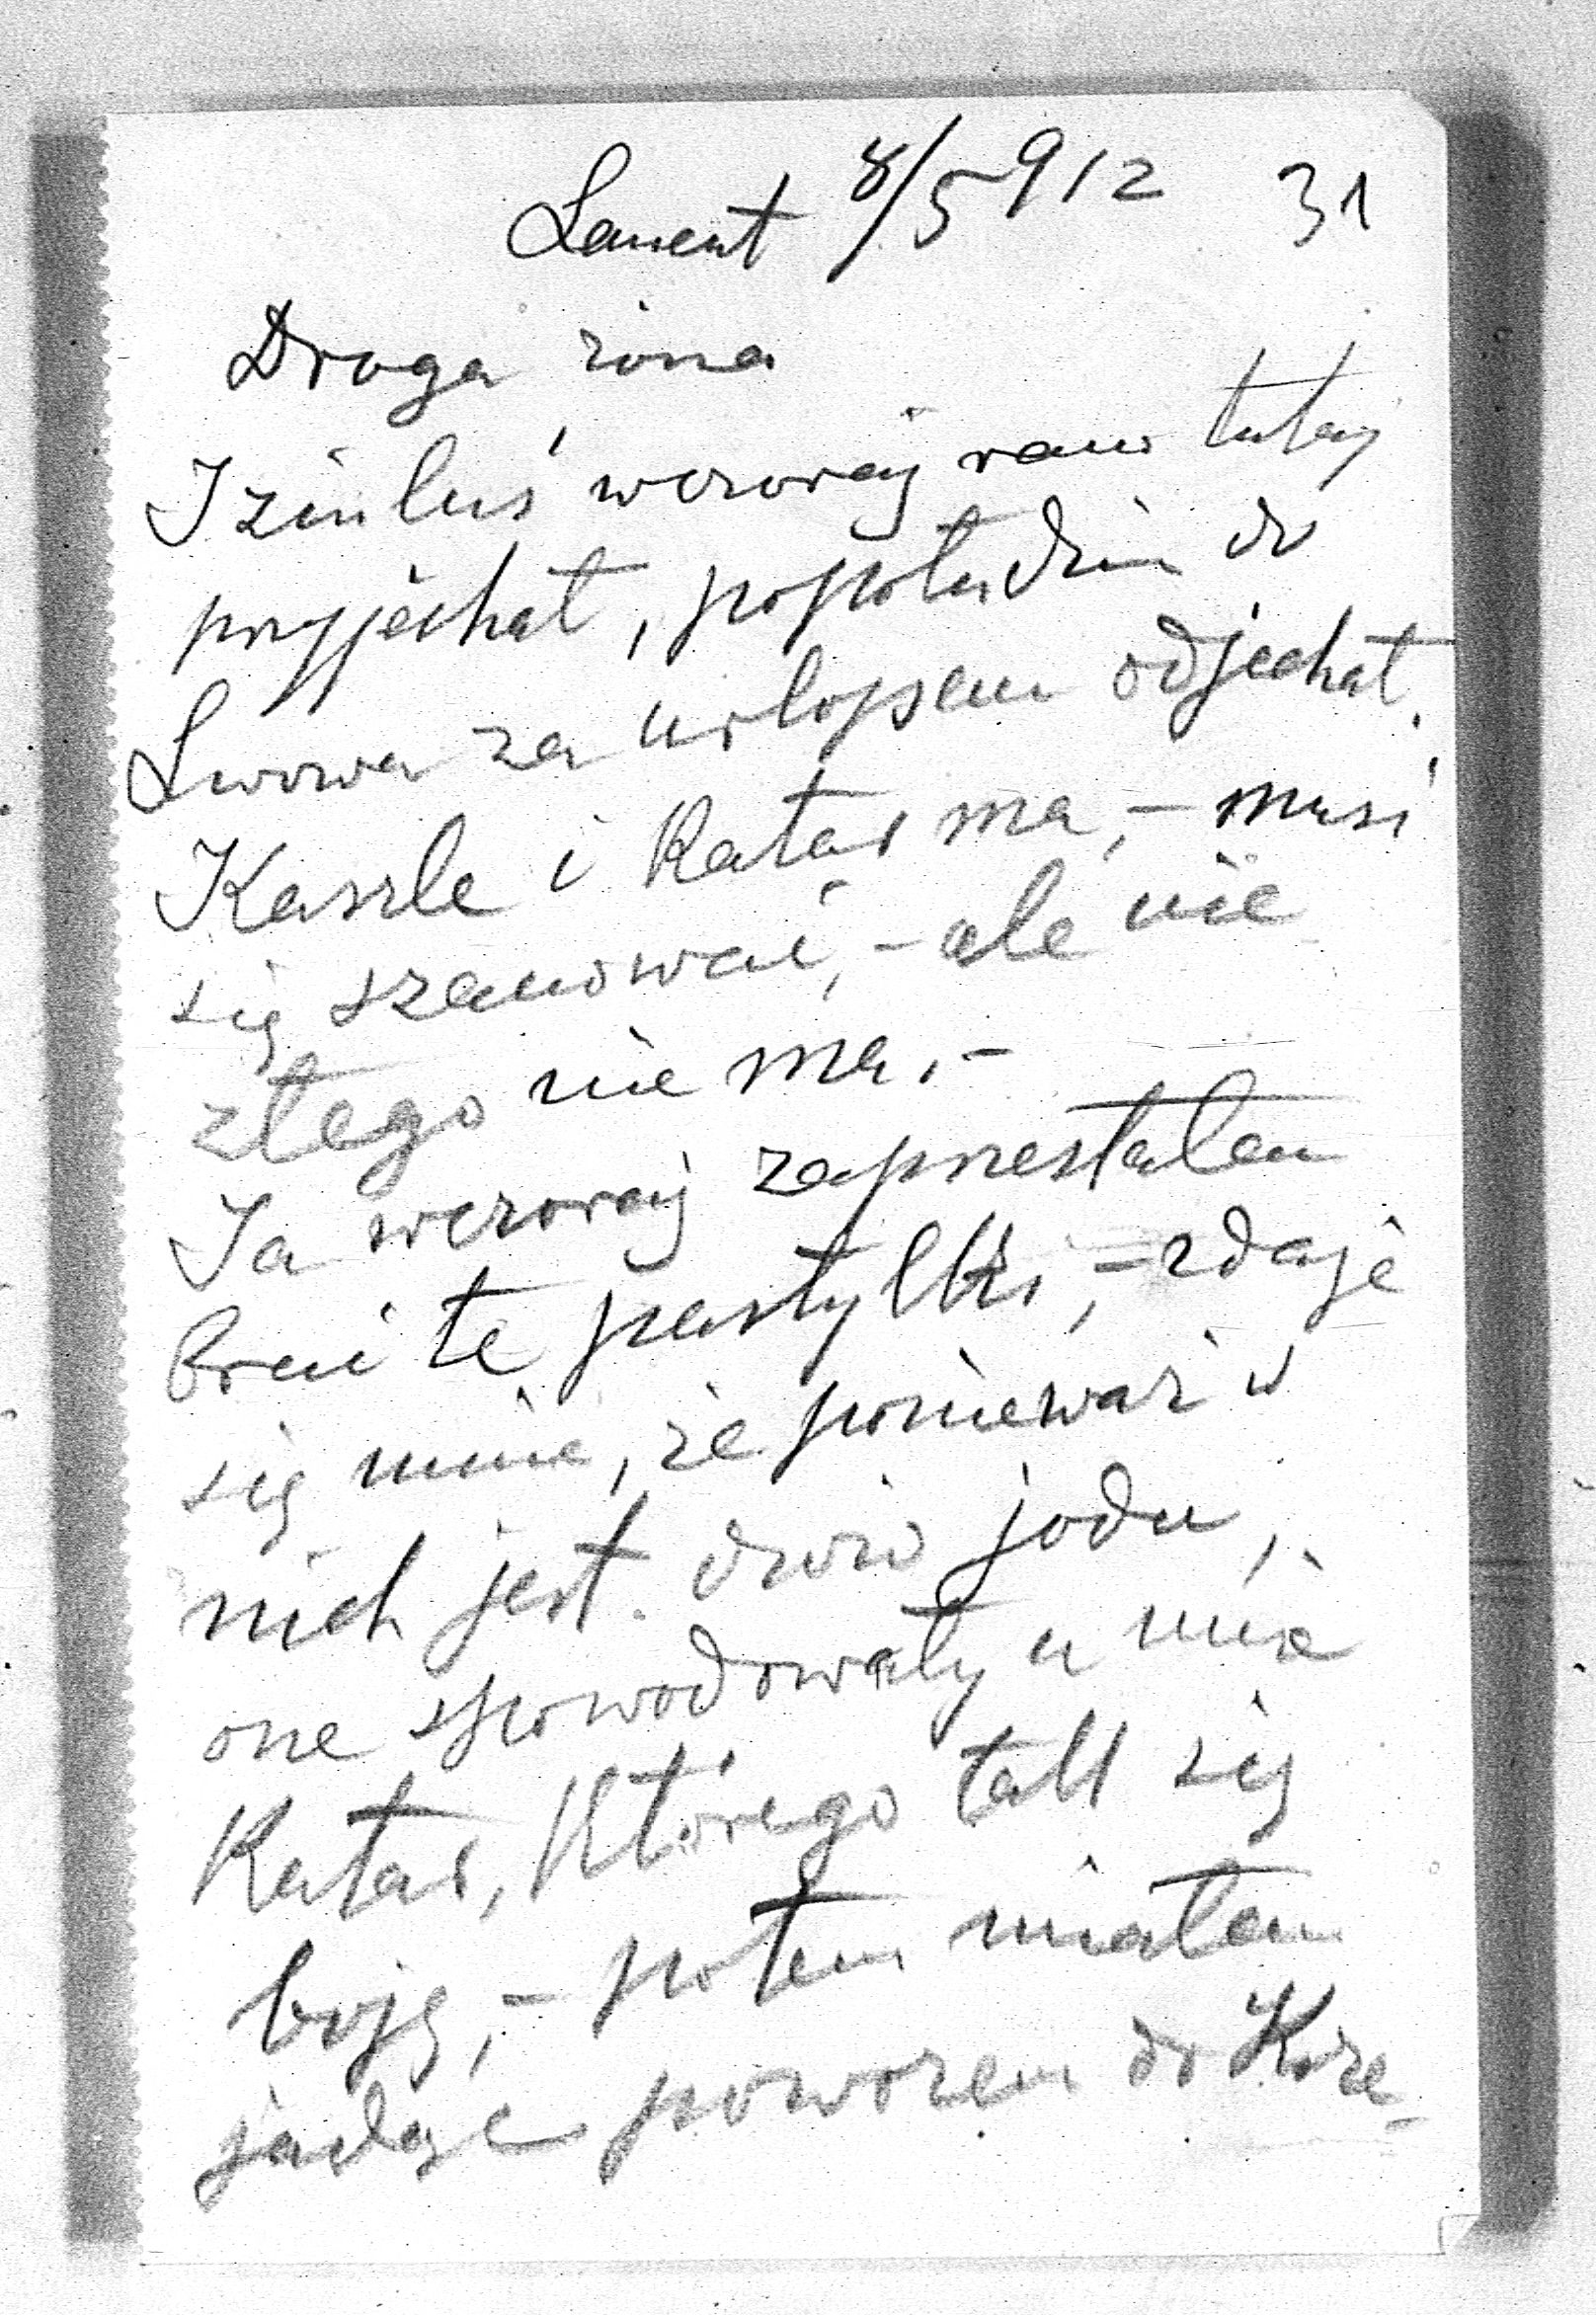 Lanent 8/5 912 31
Droga żona
Iziuluś wczoraj rano tutaj
przyjechał, popołudniu do
Lwowa za urlopem odjechał.
Kaszle i katar ma,- musi
się szanować,- ale nic
złego nie ma.-
Ja wczoraj zaprzestałem
brać te pastylki,- zdaje
się mnie, że ponieważ w
nich jest dużo jodu,
one spowodowały u mnie
katar, którego tak się
boję,- potem miałem
jadąc powozem do Krze-